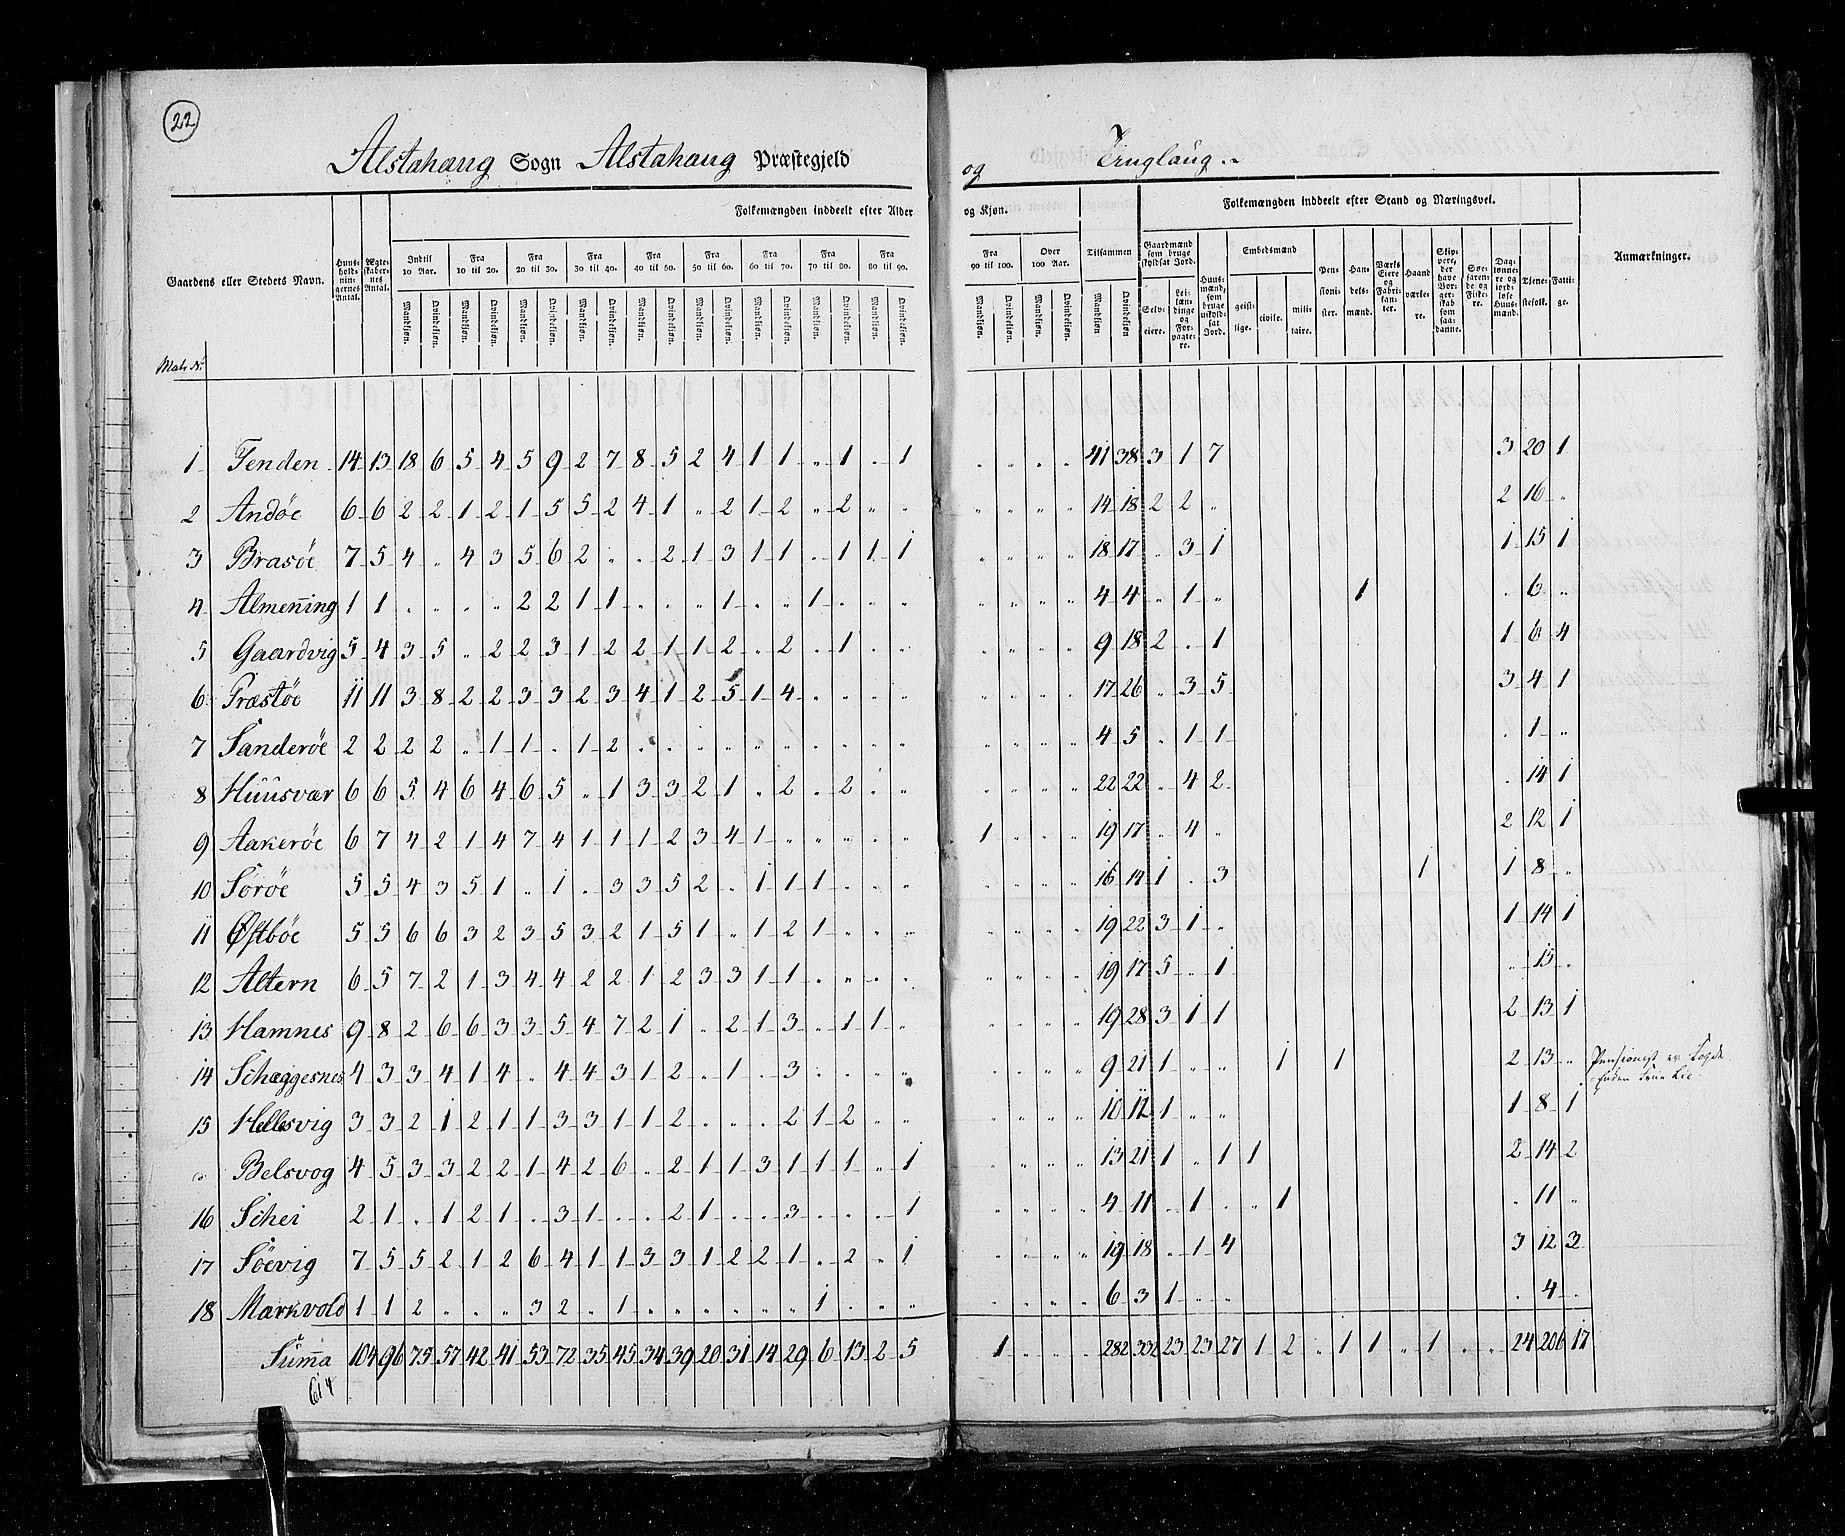 22
Alstahaug Sogn Alstahaug Præstegjeld
og Tinglaug.
Gaardens eller Stedets Navn. Huusholdningernes Antal. Ægteskabernes Antal. Folkemængden inddeelt efter Alder
og Kjøn. Tilsammen Folkemængden inddeelt efter Stand og Næringsvei. Anmærkninger.
Indtil 10 Aar. Fra 10 til 20. Fra 20 til 30. Fra 30 til 40. Fra 40 til 50. Fra 50 til 60. Fra 60 til 70. Fra 70 til 80. Fra 80 til 90. Fra 90 til 100. Over 100 Aar.
Mandkjøn. Qvindekjøn.
Gaardmænd som bruge skyldsat Jord. Selveiere. Leilændinge og Forpagtere. Huusmænd, som bruge uskyldsat Jord. Embedsmænd geistlige. civile. militaire. Pensionister. Handelsmænd. Værks Eiere og Fabrikanter. Haandværkere. Skippere, der have Borgerskab som saadanne. Søefarende og Fiskere. Daglønnere og jordløse Huusmænd. Tjenestefolk. Fattige.
Matr Nr.
1 Tenden 14 13 18 6 5 4 5 9 2 7 8 5 2 4 1 1 „ 1 . 1 . „ . . 41 38 3 1 7 3 20 1
2 Andöe 6 6 2 2 1 2 1 5 5 2 4 1 „ 2 1 2 „ 2 „ . „ „ „ „ 14 18 2 2 „ 2 16 „
3 Brasöe 7 5 4 „ 4 3 5 6 2 „ . 2 1 3 1 1 . 1 1 1 „ „ „ „ 18 17 „ 3 1 1 15 1
4 Almenning 1 1 . . . „ 2 2 1 1 . . . 1 . . 1 . . . „ „ „ „ 4 4 „ 1 „ 1 . 6 „
5 Gaardvig 5 4 3 5 „ 2 2 3 1 2 2 1 1 2 . 2 . 1 . . „ „ „ „ 9 18 2 . 1 1 6 4
6 Præstöe 11 11 3 8 2 2 3 3 2 3 4 1 2 5 1 4 . . . „ „ „ „ „ 17 26 „ 3 5 3 4 1
7 Sanderöe 2 2 2 2 „ 1 1 . 1 2 . . . . . . . . . . „ „ „ „ 4 5 . 1 1 . 1 „
8 Huusvær 6 6 5 4 6 4 6 5 „ 1 3 3 2 1 . 2 . 2 . . „ „ „ „ 22 22 . 4 2 . 14 1
9 Aakeröe 6 7 4 2 1 4 7 4 1 1 1 2 3 4 1 „ „ „ „ „ 1 . . . 19 17 „ 4 „ 2 12 1
10 Söröe 5 5 4 3 5 1 „ 1 . 3 3 5 2 . 1 1 1 . . „ „ „ „ „ 16 14 1 . 3 1 1 8 „
11 Østböe 5 5 6 6 3 2 3 5 3 2 1 5 1 „ 1 2 1 . . „ „ „ „ „ 19 22 3 1 „ 1 14 1
12 Altern 6 5 7 2 1 3 4 4 2 2 1 2 3 3 1 1 . „ . . „ „ „ „ 19 17 5 „ 1 „ 15 .
13 Hamnes 9 8 2 6 6 3 3 5 4 7 2 1 „ 2 1 3 „ 1 1 „ „ „ „ „ 19 28 3 1 1 2 13 1
14 Scheggesnes 4 3 3 4 1 4 „ 4 4 3 1 2 . 1 . 3 . . . „ „ „ „ „ 9 21 1 „ „ 1 1 2 13 „ Pensionist er Fogde
Enken Frue Lie.
15 Hellesvig 3 3 2 1 2 1 1 3 3 1 1 2 . . . 2 1 2 „ „ „ „ „ „ 10 12 1 „ „ 1 8 1
Belsvog 4 5 3 3 2 2 1 4 2 6 „ 2 1 1 3 1 1 1 „ 1 „ „ „ „ 13 21 1 „ 1 1 2 14 2
16 Schei 2 1 . 1 2 1 . 3 1 . . 2 1 . . 3 . . . 1 „ „ „ „ 4 11 „ 1 . „ 1 . 11 „
17 Söevig 7 5 5 2 1 2 6 4 1 1 3 3 1 2 2 1 . 2 „ 1 „ „ „ „ 19 18 „ 1 4 3 12 3
18 Markvold 1 1 2 „ . „ 3 2 „ 1 „ „ „ „ „ „ 1 . . „ „ „ „ „ 6 3 1 „ „ . 4 .
Suma 104 96 75 57 42 41 53 72 35 45 34 39 20 31 14 29 6 13 2 5 1 . „ „ 282 332 23 23 27 1 2 „ 1 1 „ 1 „ „ 24 206 17
614